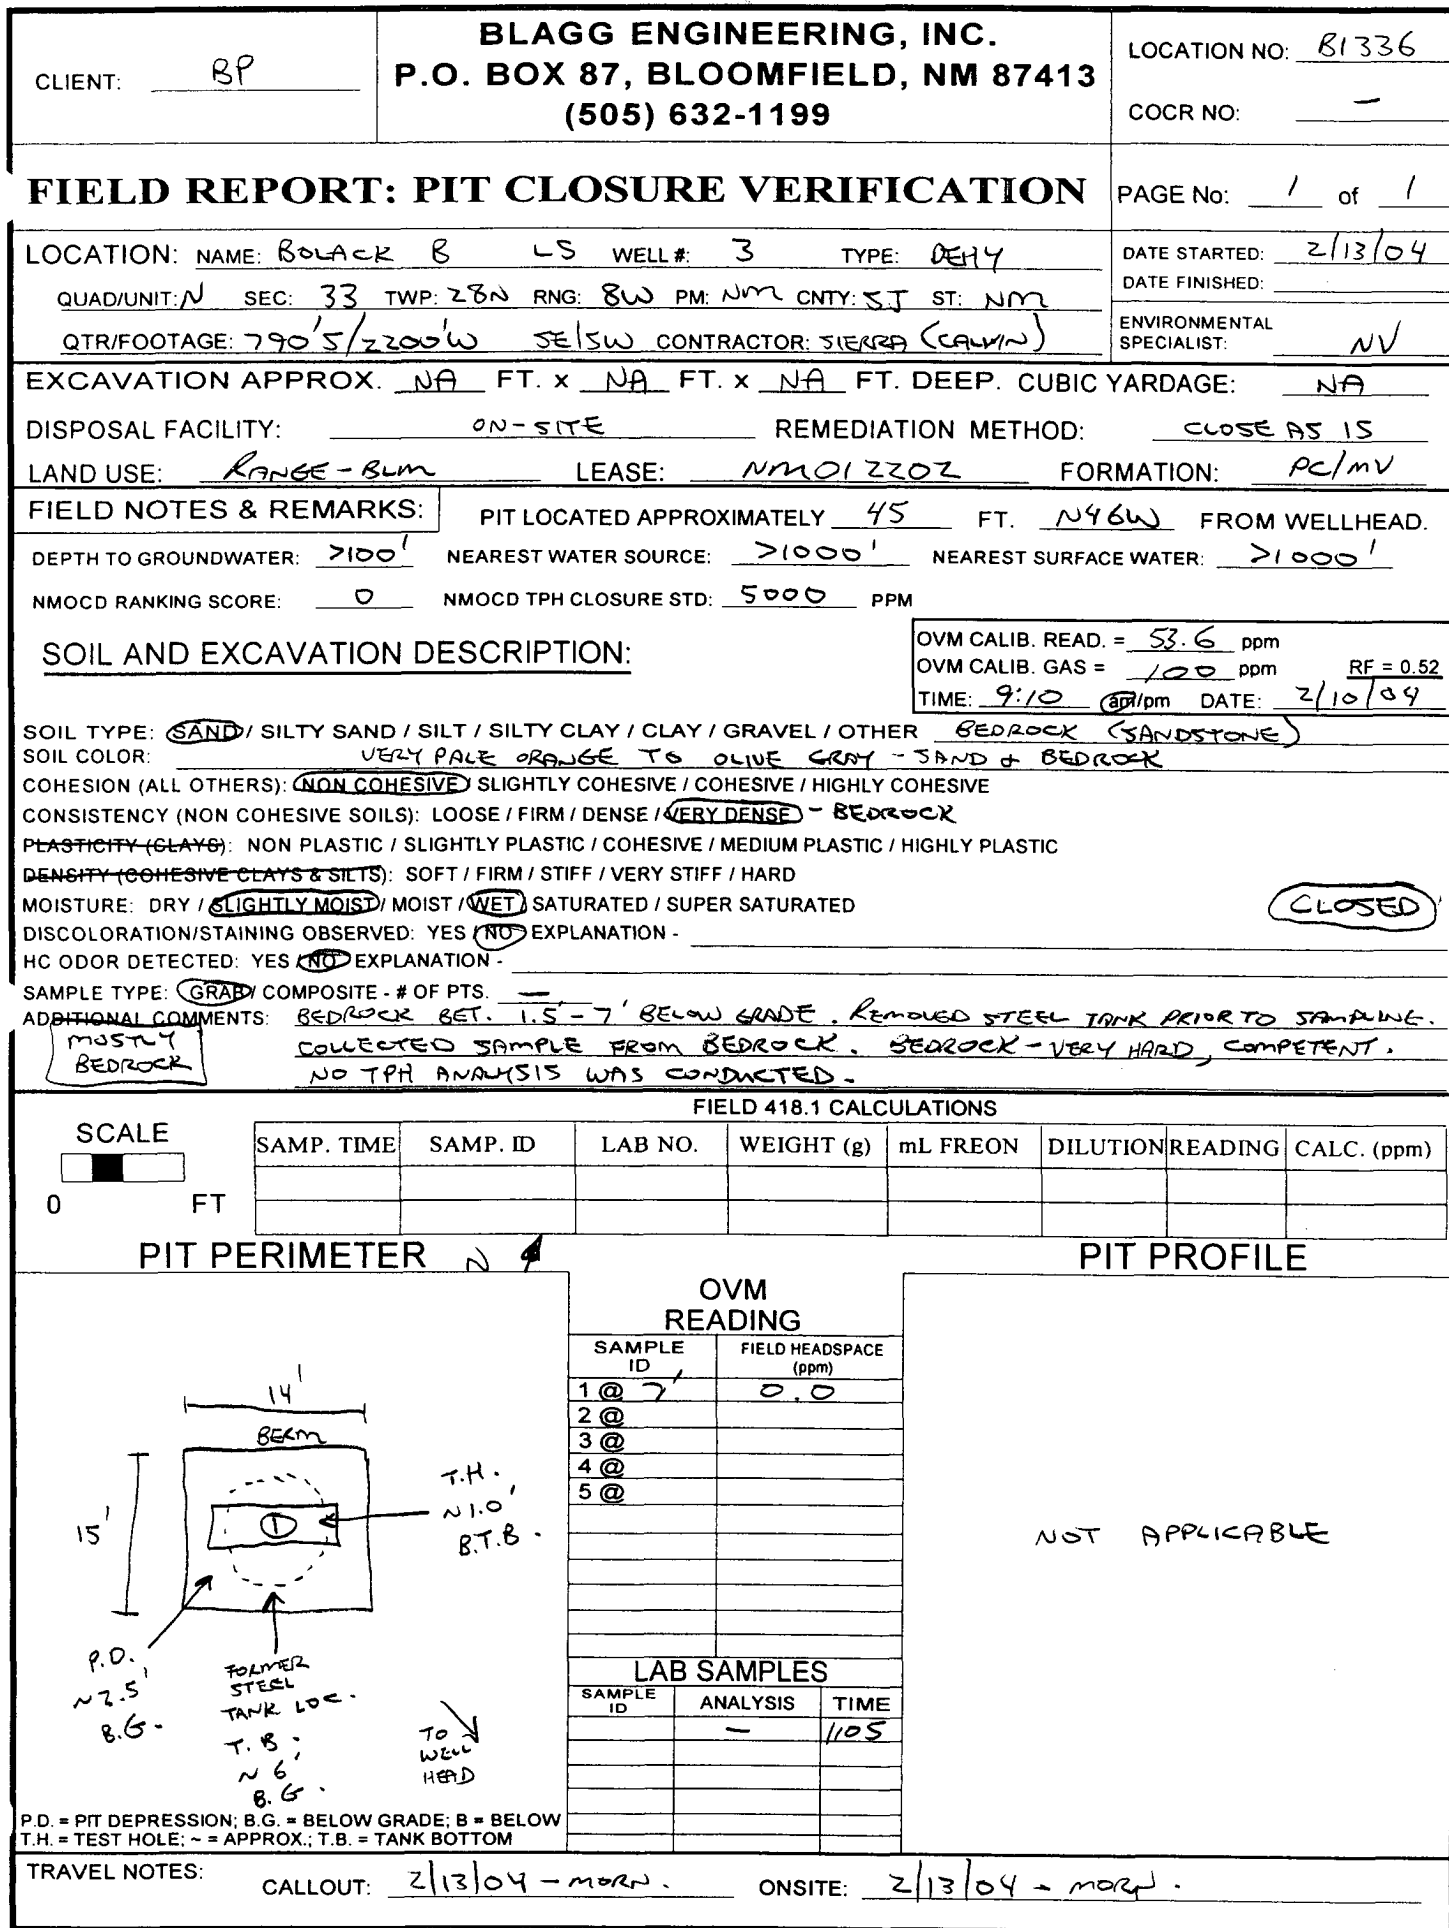 CLIENT: BP
BLAGG ENGINEERING, INC.
P.O. BOX 87, BLOOMFIELD, NM 87413
(505) 632-1199
LOCATION NO: B1336
COCR NO: —
FIELD REPORT: PIT CLOSURE VERIFICATION
PAGE No: 1 of 1
LOCATION: NAME: BOLACK B LS WELL #: 3 TYPE: DEHY
QUAD/UNIT: N SEC: 33 TWP: 28N RNG: 8W PM: NM CNTY: SJ ST: NM
QTR/FOOTAGE: 790'S/2200'W SE/SW CONTRACTOR: SIERRA (CALVIN)
DATE STARTED: 2/13/04
DATE FINISHED:
ENVIRONMENTAL
SPECIALIST: NV
EXCAVATION APPROX. NA FT. x NA FT. x NA FT. DEEP. CUBIC YARDAGE: NA
DISPOSAL FACILITY: ON-SITE REMEDIATION METHOD: CLOSE AS IS
LAND USE: RANGE-BLM LEASE: NM012202 FORMATION: PC/MV
FIELD NOTES & REMARKS: PIT LOCATED APPROXIMATELY 45 FT. N46W FROM WELLHEAD.
DEPTH TO GROUNDWATER: >100' NEAREST WATER SOURCE: >1000' NEAREST SURFACE WATER: >1000'
NMOCD RANKING SCORE: 0 NMOCD TPH CLOSURE STD: 5000 PPM
SOIL AND EXCAVATION DESCRIPTION:
OVM CALIB. READ. = 53.6 ppm
OVM CALIB. GAS = 100 ppm RF = 0.52
TIME: 9:10 am/pm DATE: 2/10/04
SOIL TYPE: SAND / SILTY SAND / SILT / SILTY CLAY / CLAY / GRAVEL / OTHER BEDROCK (SANDSTONE)
SOIL COLOR: VERY PALE ORANGE TO OLIVE GRAY - SAND & BEDROCK
COHESION (ALL OTHERS): NON COHESIVE / SLIGHTLY COHESIVE / COHESIVE / HIGHLY COHESIVE
CONSISTENCY (NON COHESIVE SOILS): LOOSE / FIRM / DENSE / VERY DENSE - BEDROCK
PLASTICITY (CLAYS): NON PLASTIC / SLIGHTLY PLASTIC / COHESIVE / MEDIUM PLASTIC / HIGHLY PLASTIC
DENSITY (COHESIVE CLAYS & SILTS): SOFT / FIRM / STIFF / VERY STIFF / HARD
MOISTURE: DRY / SLIGHTLY MOIST / MOIST / WET / SATURATED / SUPER SATURATED
CLOSED
DISCOLORATION/STAINING OBSERVED: YES / NO EXPLANATION -
HC ODOR DETECTED: YES / NO EXPLANATION -
SAMPLE TYPE: GRAB / COMPOSITE - # OF PTS. —
ADDITIONAL COMMENTS: BEDROCK BET. 1.5' - 7' BELOW GRADE. REMOVED STEEL TANK PRIOR TO SAMPLING.
MOSTLY
BEDROCK
COLLECTED SAMPLE FROM BEDROCK. BEDROCK - VERY HARD, COMPETENT.
NO TPH ANALYSIS WAS CONDUCTED.
FIELD 418.1 CALCULATIONS
SCALE
0 FT
SAMP. TIME SAMP. ID LAB NO. WEIGHT (g) mL FREON DILUTION READING CALC. (ppm)
PIT PERIMETER N
14'
BERM
15'
T.H.
~1.0'
B.T.B.
P.D.
~2.5'
B.G.
FORMER
STEEL
TANK LOC.
T.B.
~6'
B.G.
TO
WELL
HEAD
P.D. = PIT DEPRESSION; B.G. = BELOW GRADE; B = BELOW
T.H. = TEST HOLE; ~ = APPROX.; T.B. = TANK BOTTOM
OVM
READING
SAMPLE ID FIELD HEADSPACE (ppm)
1 @ 7' 0.0
2 @
3 @
4 @
5 @
LAB SAMPLES
SAMPLE ID ANALYSIS TIME
— 1105
PIT PROFILE
NOT APPLICABLE
TRAVEL NOTES: CALLOUT: 2/13/04 - MORN. ONSITE: 2/13/04 - MORN.